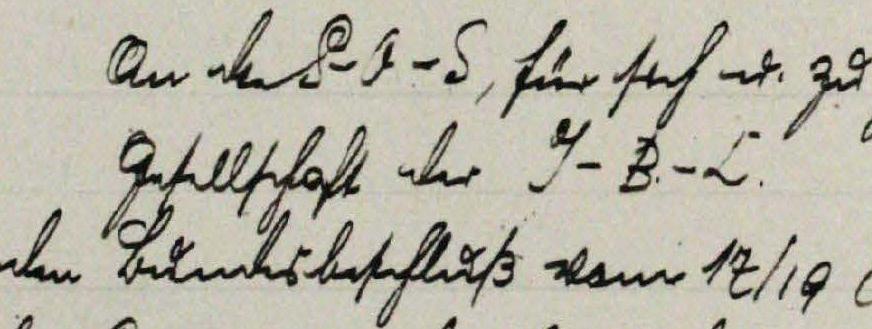 An die S-O-S, für sich u. zu
Gesellschaft der J-B.-L.
den Bundesbeschluß vom 17/19